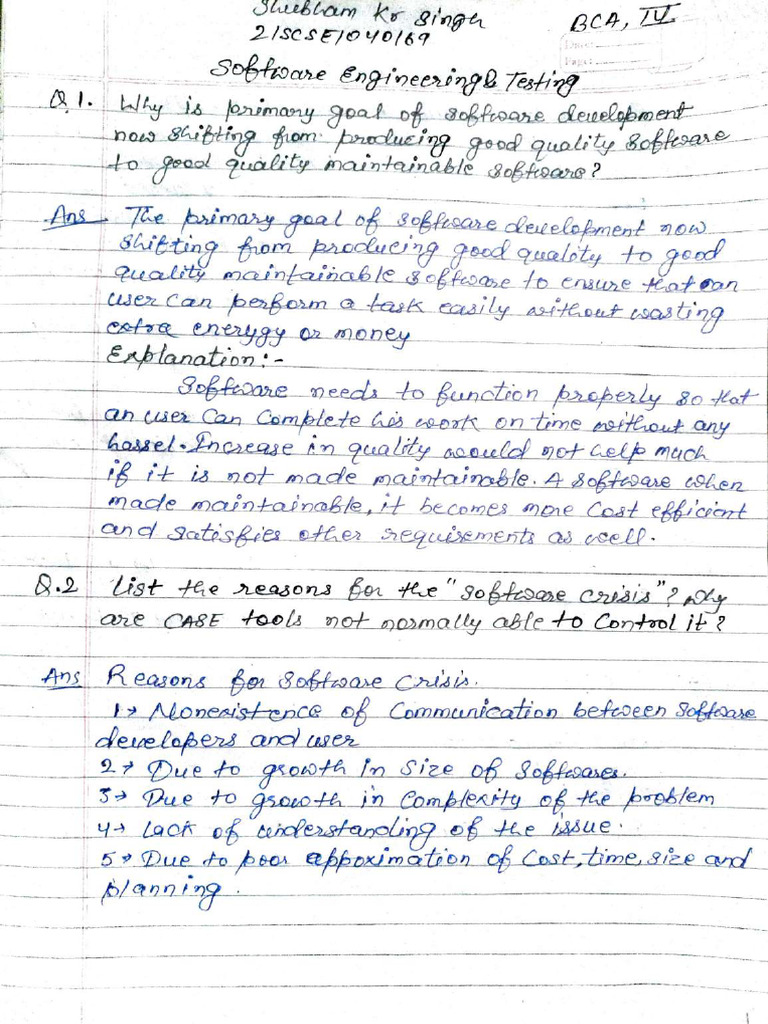 Shubham Kr Singh
BCA, IV
21SCSE1040169
Date:
Page:
Software Engineering & Testing
Q.1. Why is primary goal of software development
now shifting from producing good quality software
to good quality maintainable software?
Ans The primary goal of software development now
shifting from producing good quality to good
quality maintainable software to ensure that an
user can perform a task easily without wasting
extra enerygy or money
Explanation:-
Software needs to function properly so that
an user can complete his work on time without any
hassel. Increase in quality would not help much
if it is not made maintainable. A software when
made maintainable, it becomes more cost efficient
and satisfies other requirements as well.
Q.2 List the reasons for the "software crisis"? Why
are CASE tools not normally able to control it?
Ans Reasons for software crisis.
1→ Nonexistence of communication between software
developers and user
2→ Due to growth in size of softwares.
3→ Due to growth in complexity of the problem
4→ Lack of understanding of the issue.
5→ Due to poor appoximation of cost, time, size and
planning.